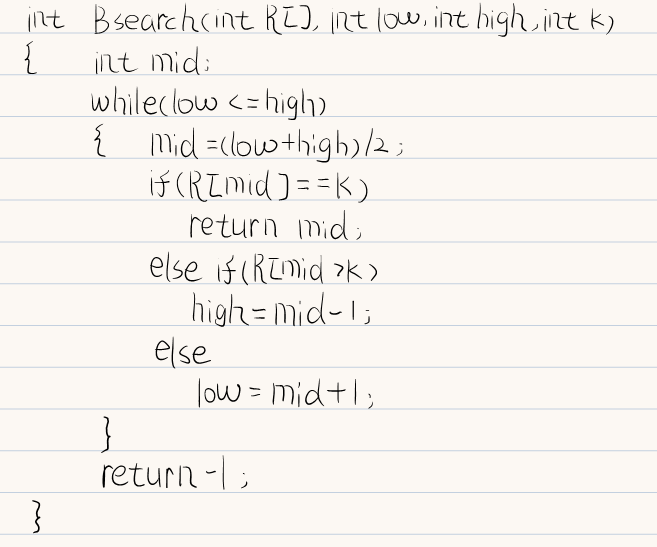 int Bsearch(int R[], int low, int high, int k)
{ int mid;
while(low <= high)
{ mid =(low+high)/2;
if(R[mid]==k)
return mid;
else if(R[mid >k)
high=mid-1;
else
low = mid+1;
}
return -1;
}